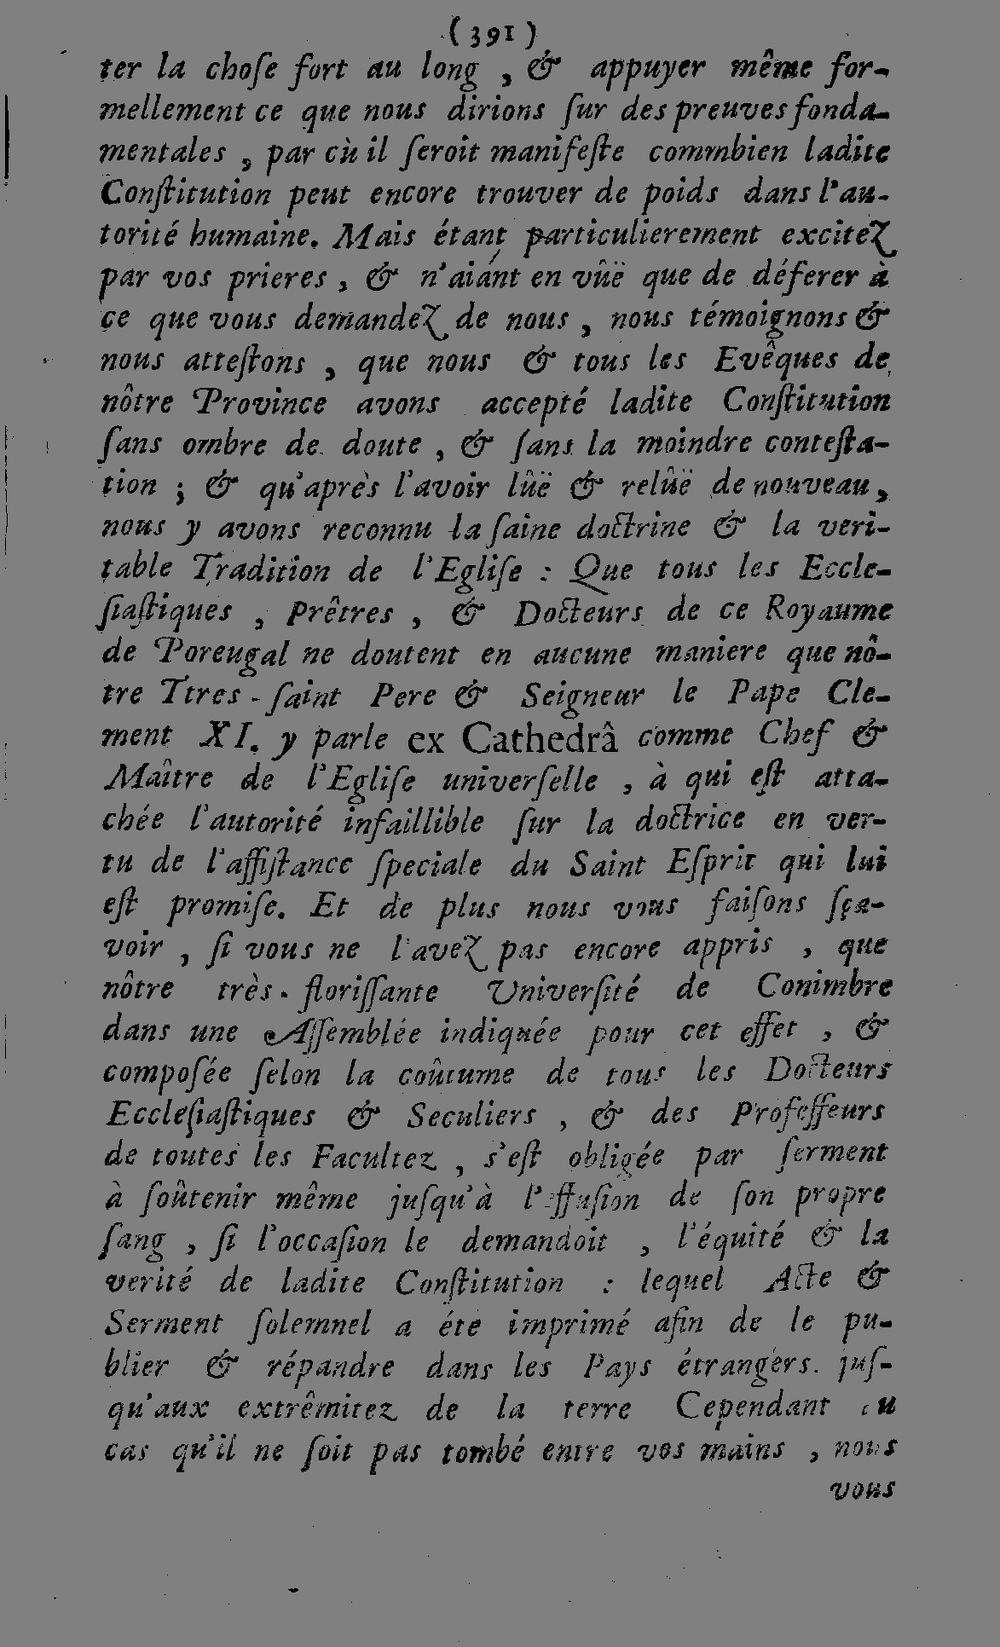 (391)
ter la choſe fort au long , & appuyer même for-
mellement ce que nous dirions ſur des preuves fonda-
mentales , par cù il ſeroit manifeſte commbien ladite
Conſtitution peut encore trouver de poids dans l'au-
torité humaine. Mais étant particulierement excitez
par vos prieres , & n'aiánt en vûë que de déferer à
ce que vous demandez de nous , nous témoignons &
nous atteſtons , que nous & tous les Evêques de
nôtre Province avons accepté ladite Conſtitution
ſans ombre de doute , & ſans la moindre conteſta-
tion ; & qu'après l'avoir lûë & relûë de nouveau,
nous y avons reconnu la ſaine doctrine & la veri-
table Tradition de l'Egliſe : Que tous les Eccle-
ſiaſtiques , Prêtres , & Docteurs de ce Royaume
de Poreugal ne doutent en aucune maniere que nô-
tre Ttres-ſaint Pere & Seigneur le Pape Cle-
ment XI. y parle ex Cathedrâ comme Chef &
Maître de l'Egliſe univerſelle , à qui eſt atta-
chée l'autorité infaillible ſur la doctrice en ver-
tu de l'aſſiſtance ſpeciale du Saint Eſprit qui lui
eſt promiſe. Et de plus nous vous faiſons ſça-
voir , ſi vous ne l'avez pas encore appris , que
nôtre très-floriſſante Univerſité de Conimbre
dans une Aſſemblée indiquée pour cet effet , &
compoſée ſelon la coûtume de tous les Docteurs
Eccleſiaſtiques & Seculiers , & des Profeſſeurs
de toutes les Facultez , s'eſt obligée par ſerment
à ſoûtenir même juſqu'à l'effuſion de ſon propre
ſang , ſi l'occaſion le demandoit , l'équité & la
verité de ladite Conſtitution : lequel Acte &
Serment ſolemnel a éte imprimé afin de le pu-
blier & répandre dans les Pays étrangers. juſ-
qu'aux extrêmitez de la terre Cependant au
cas qu'il ne ſoit pas tombé entre vos mains , nous
vous